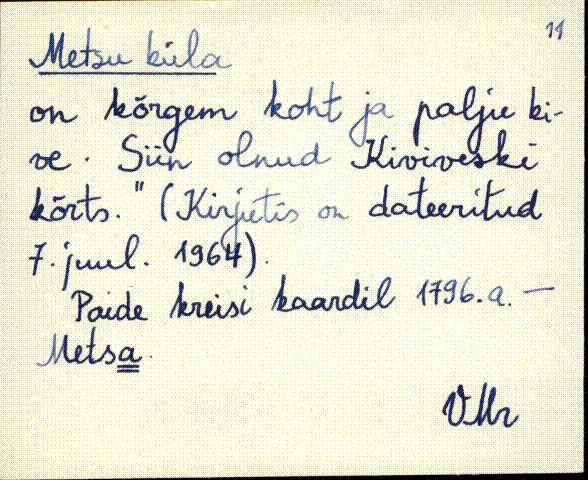 11
Metsu küla
on kõrgem koht ja palju ki-
ve. Siin olnud Kiviveski
kõrts." (Kirjutis on dateeritud
7. juul. 1964).
Paide kreisi kaardil 1796.a. —
Metsa.
VMr